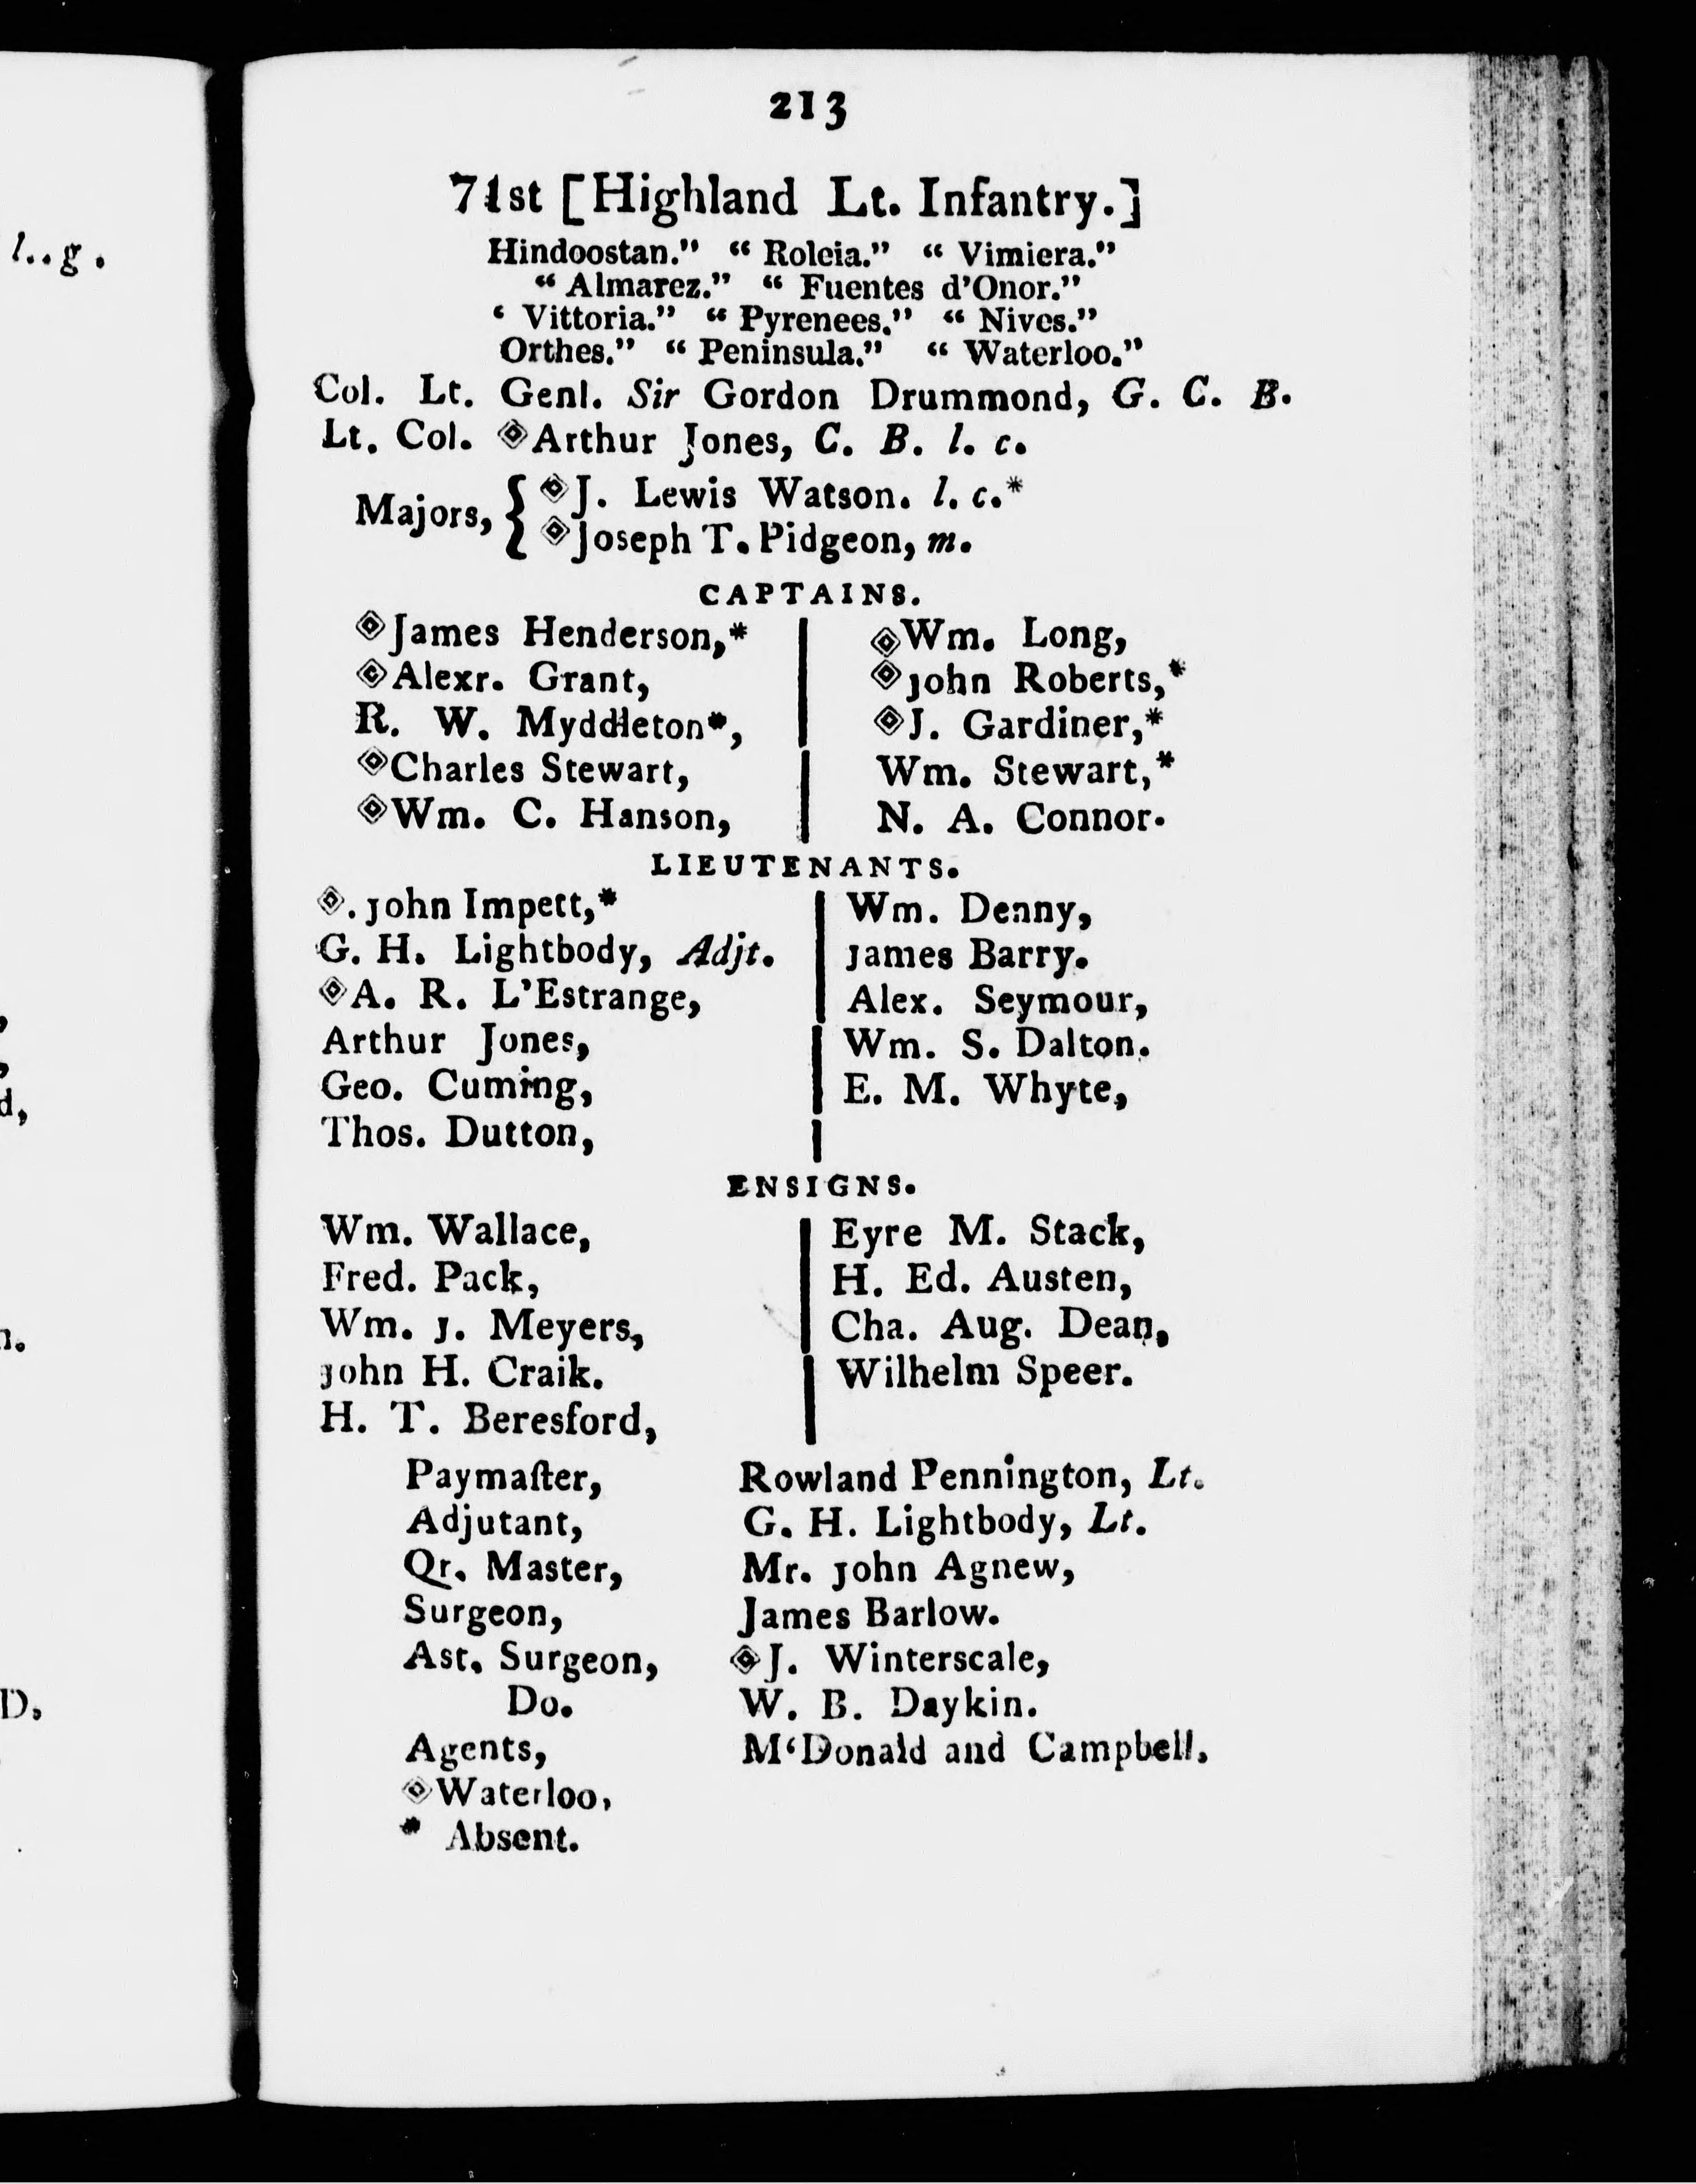 213
71st [Highland Lt. Infantry.]
Hindoostan." " Roleia." " Vimiera."
" Almarez." " Fuentes d'Onor."
‘ Vittoria." " Pyrenees." " Nives."
Orthes." " Peninsula." " Waterloo."
Col. Lt. Genl. Sir Gordon Drummond, G. C. B.
Lt. Col. ◈Arthur Jones, C. B. l. c.
Majors, { ◈J. Lewis Watson. l. c.*
◈Joseph T. Pidgeon, m.
CAPTAINS.
◈James Henderson,*
◈Alexr. Grant,
R. W. Myddleton*,
◈Charles Stewart,
◈Wm. C. Hanson,
◈Wm. Long,
◈John Roberts,*
◈J. Gardiner,*
Wm. Stewart,*
N. A. Connor.
LIEUTENANTS.
◈. John Impett,*
G. H. Lightbody, Adjt.
◈A. R. L'Estrange,
Arthur Jones,
Geo. Cuming,
Thos. Dutton,
Wm. Denny,
James Barry.
Alex. Seymour,
Wm. S. Dalton.
E. M. Whyte,
ENSIGNS.
Wm. Wallace,
Fred. Pack,
Wm. J. Meyers,
John H. Craik.
H. T. Beresford,
Eyre M. Stack,
H. Ed. Austen,
Cha. Aug. Dean,
Wilhelm Speer.
Paymaſter, Rowland Pennington, Lt.
Adjutant, G. H. Lightbody, Lt.
Qr. Master, Mr. John Agnew,
Surgeon, James Barlow.
Ast. Surgeon, ◈J. Winterscale,
Do. W. B. Daykin.
Agents, M‘Donald and Campbell.
◈Waterloo,
* Absent.
l..g.
d,
n.
D,